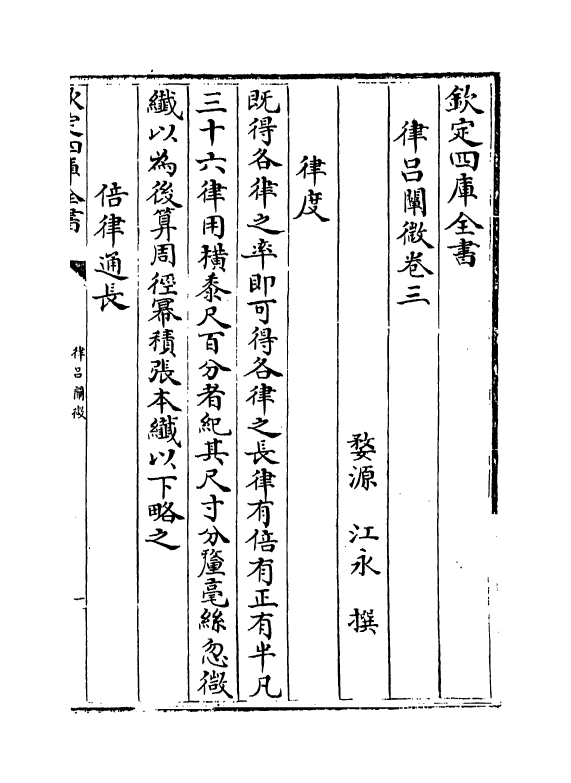 欽定四庫全書
律呂闡微卷三
婺源　江永　撰
律度
既得各律之率即可得各律之長律有倍有正有半凡
三十六律用橫黍尺百分者紀其尺寸分釐毫絲忽微
纖以為後算周徑冪積張本纖以下略之
倍律通長
欽定四庫全書
律呂闡微
一